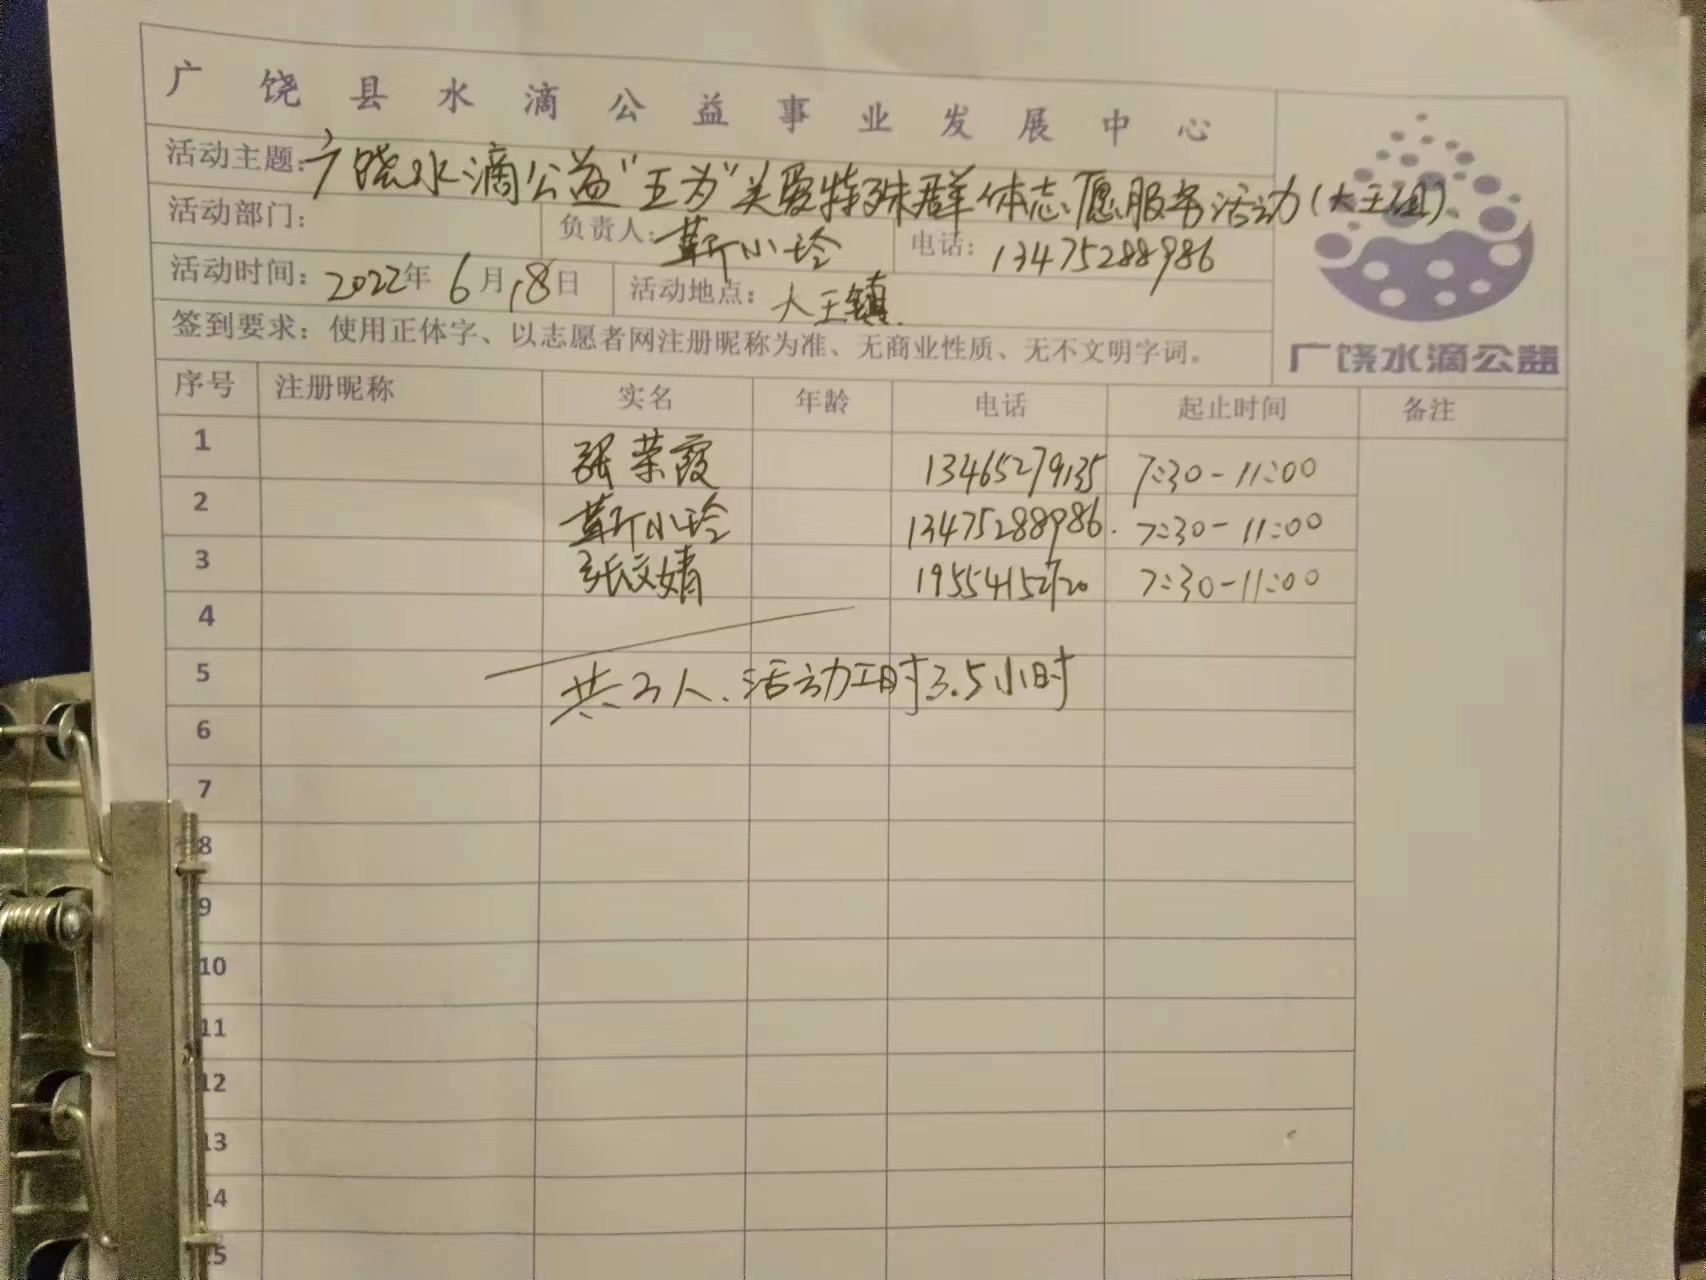 广饶县水滴公益事业发展中心
活动主题:广饶水滴公益“五为”关爱特殊群体志愿服务活动(大王组)
活动部门: 负责人:靳小玲 电话:13475288986
活动时间:2022年6月18日 活动地点:大王镇
签到要求:使用正体字、以志愿者网注册昵称为准、无商业性质、无不文明字词。
广饶水滴公益
序号 注册昵称 实名 年龄 电话 起止时间 备注
1 张荣霞 13465279135 7:30-11:00
2 靳小玲 13475288986. 7:30-11:00
3 张文婧 7:30-11:00
4
5 共3人、活动工时3.5小时
6
7
8
9
10
11
12
13
14
15